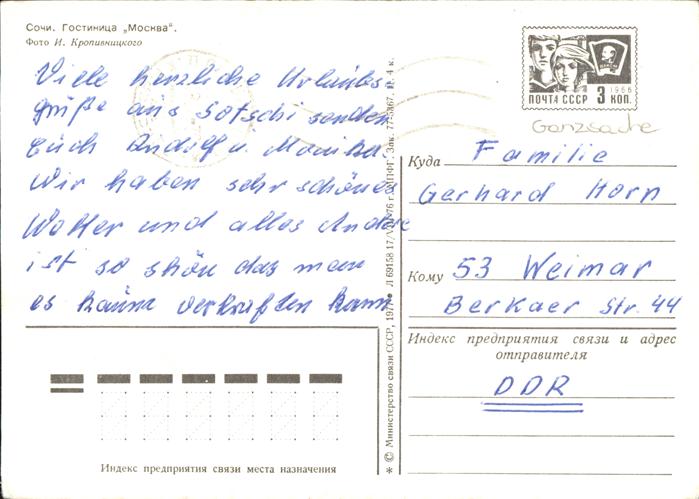 Сочи. Гостиница „Москва".
Фото И. Кропивницкого
Viele herzliche Urlaubs-
grüße aus Sotschi senden
Euch Rudolf u. Monika.
Wir haben sehr schönes
Wetter und alles Andere
ist so schön das man
es kaum verkraften kann
ПОЧТА СССР 3 КОП.
1966
Ganzsache
Куда Familie
Gerhard Horn
Кому 53 Weimar
Berkaer Str. 44
Индекс предприятия связи и адрес
отправителя
DDR
Индекс предприятия связи места назначения
* © Министерство связи СССР, 197